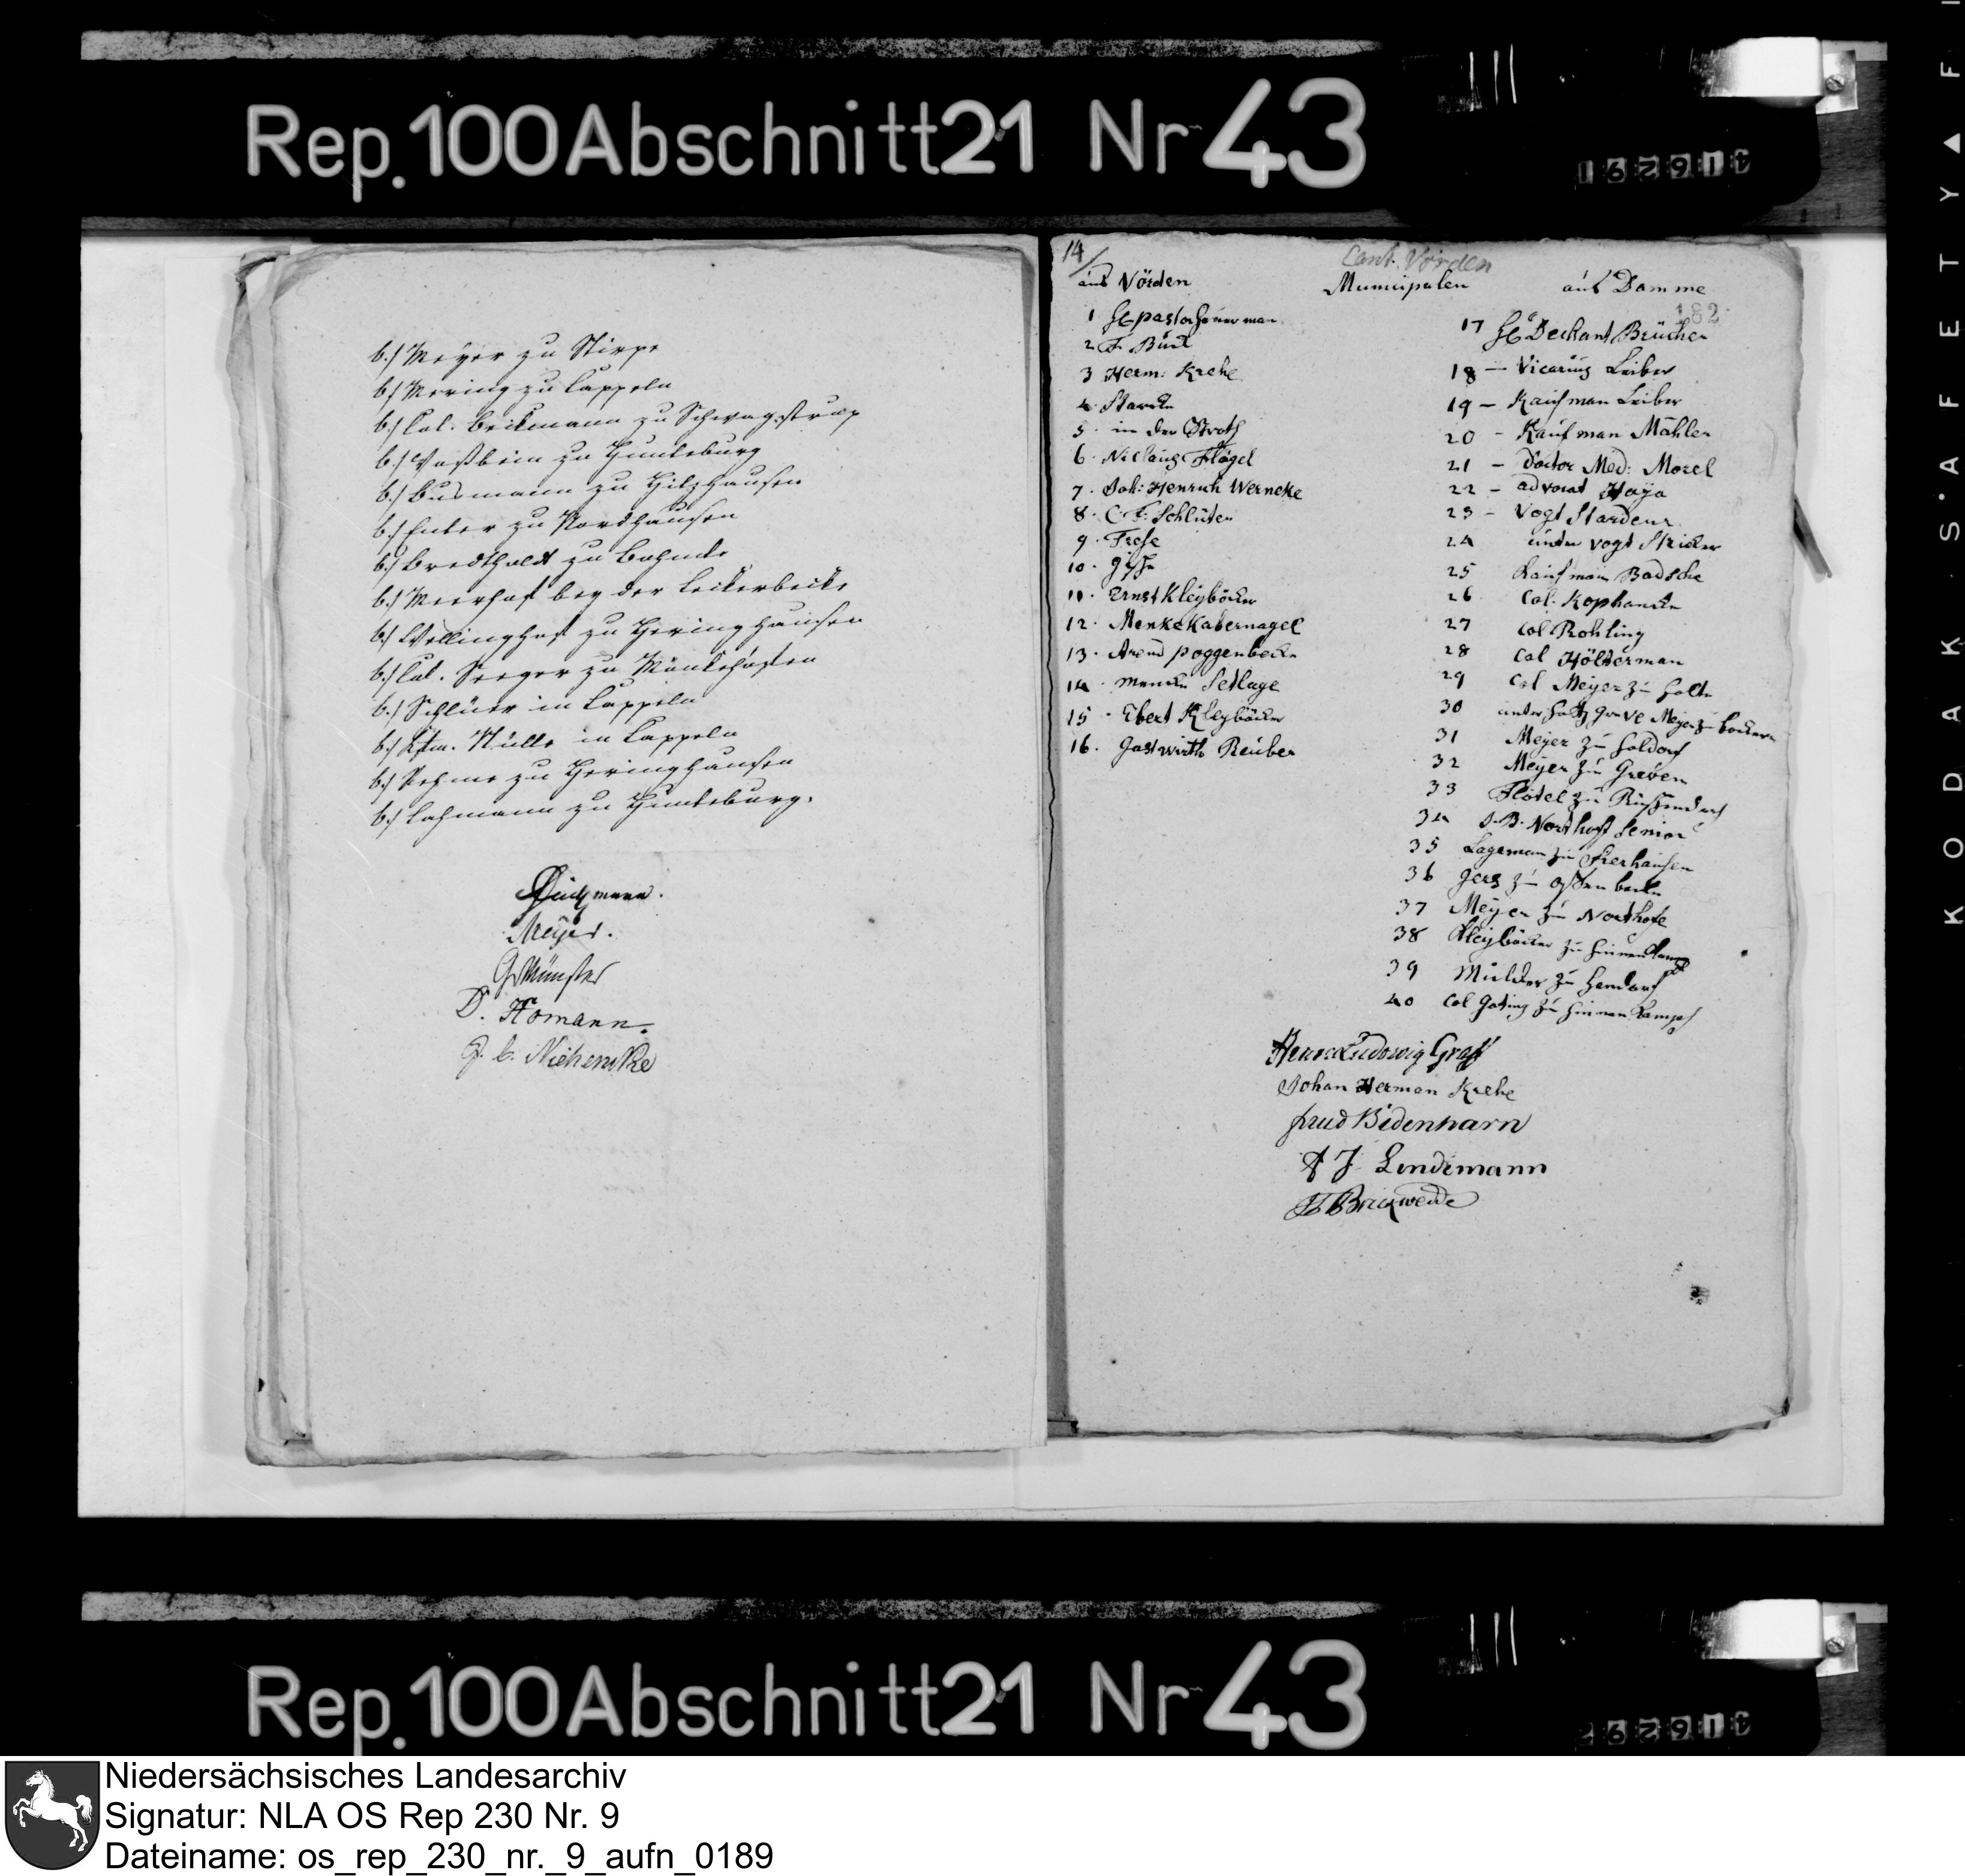 Rep. 100 Abschnitt 21 Nr 43
b./ Meyer zu Stirpe
b./ Mering zu Cappeln
b./ Col. Beckmann zu Schwagstrup
b./ Voßbein zu Hunteburg
b./ Busmann zu Hitzhausen
b./ Enter zu Nordhausen
b./ Bredtholdt zu Bohmte
b./ Meerhof bey der Leckerbecke
b./ Wellinghof zu Heringhausen
b./ Col. Seeger zu Mönkehöften
b./ Schlüer in Cappeln
b./ Kfm. Nülle in Cappeln
b./ Rehme zu Heringhausen
b./ Lahmann zu Hunteburg.
Meyer.
G Münster
D. Homann.
Niehencke
14/
Cant. Vörden
aus Vörden
Municipalen
aus Damme
182
1 H pastor
2 F. Buck
3 Herm: Krehe
4 Starcke
5 in der Stroth
6 Niclaus Flögel
7 Joh: Henrich Werneke
8 C. F. Schlüter
9 Frese
10
11 Ernst Kleyböcker
12 Menke Kabernagel
13 Arend poggenbecke
14 Mencke Setlage
15 Ebert Kleyböcker
16 Gastwirth Reuber
17 H Dechant Brücher
18 — Vicarius Leiber
19 — Kaufman Leiber
20 - Kaufman Mähler
21 — Doctor Med: Morel
22 — advocat Haya
23 — Vogt Stardenr
24 unter vogt Stricker
25 Kaufman Badsche
26 Col. Kophancke
27 Col Rohling
28 Col Hölterman
29 Col Meyer zu Holte
30 unter Holtz Greve Meyer zu Bockern
31 Meyer zu Holdorf
32 Meyer zu Greven
33 Flotel zu Rüschendorf
34 J. B. Northoff Senior
35 Lageman zu Fierhausen
36 Gers zu Ostenbecke
37 Meyer zu Northofe
38 Kleyböcker zu Hinnenkamp
39 Mulder zu Handorf
40 Col Goting zu Hinnenkamp
Henr: Ludowig Graff
Johan Herman Krehe
frud Bidenharn
A J Lindemann
Brickwedde
Rep. 100 Abschnitt 21 Nr 43
KODAK · SAFETY ▲ F
Niedersächsisches Landesarchiv
Signatur: NLA OS Rep 230 Nr. 9
Dateiname: os_rep_230_nr._9_aufn_0189